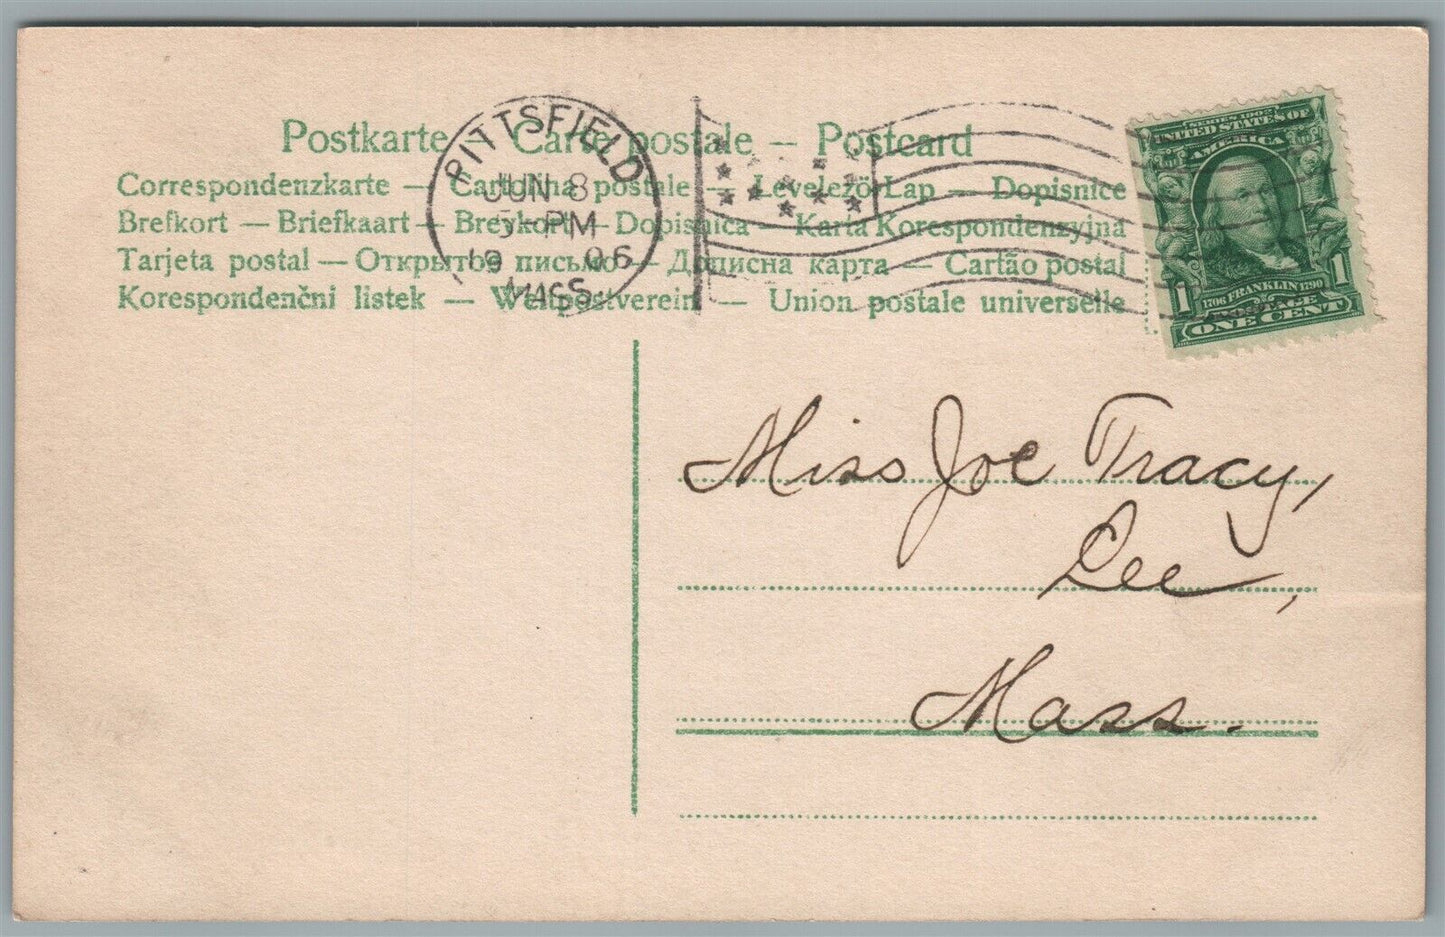 Postkarte — Carte postale — Postcard
Correspondenzkarte — Cartolina postale — Levelező-Lap — Dopisnice
Brefkort — Briefkaart — Brevkort — Dopisnica — Karta Korespondenzyjna
Tarjeta postal — Открытое письмо — Дописна карта — Cartão postal
Korespondenční listek — Weltpostverein — Union postale universelle
PITTSFIELD
JUN 8
PM
19 06
MASS.
SERIES 1902
UNITED STATES OF
AMERICA
1706 FRANKLIN 1790
1 1
POSTAGE
ONE CENT
Miss Joe Tracy,
Lee,
Mass.